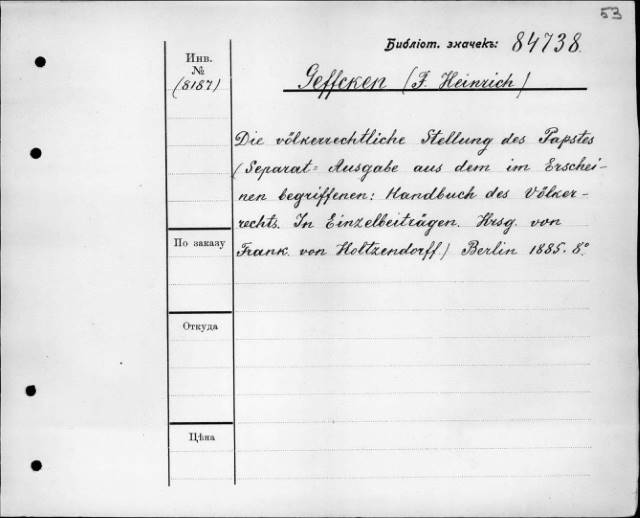 53
Библіот. значекъ: 84738
Инв.
№
(8187)
Geffcken (F. Heinrich)
Die völkerrechtliche Stellung des Papstes
(Separat=Ausgabe aus dem im Erschei-
nen begriffenen: Handbuch des Völker-
rechts. In Einzelbeiträgen. Hrsg. von
Frank. von Holtzendorff.) Berlin 1885. 8°.
По заказу
Откуда
Цѣна